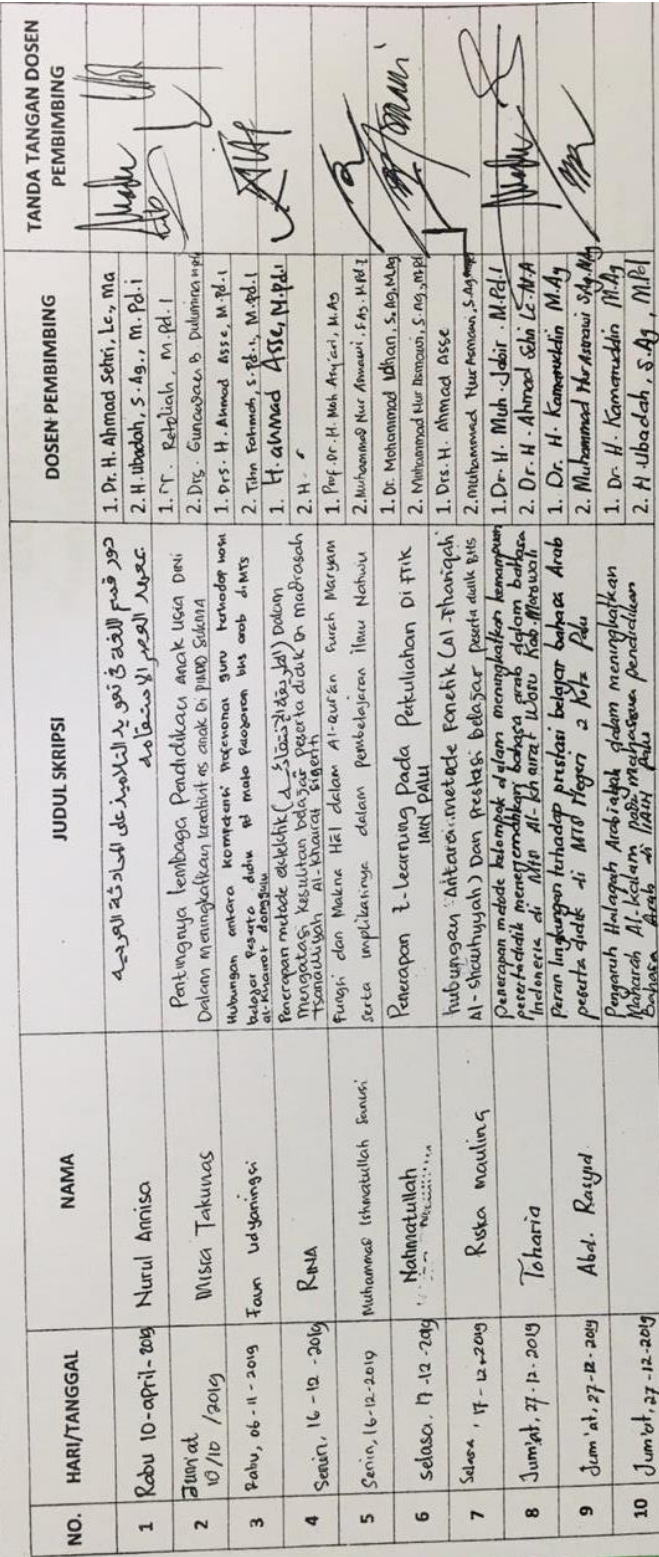 NO.
HARI/TANGGAL
NAMA
JUDUL SKRIPSI
DOSEN PEMBIMBING
TANDA TANGAN DOSEN
PEMBIMBING
1
Rabu 10-april-2019
Nurul Annisa
دور قسم اللغة في تعويد التلاميذ على المحادثة العربية
1. Dr. H. Ahmad Sehri, Lc., Ma
2. H. Ubadah, S.Ag., M.Pd.i
2
Jum'at
10/10/2019
Misra Takunas
Pentingnya lembaga Pendidikan anak Usia Dini
Dalam meningkatkan kreativitas anak Di PIAUD Sukma
1. Retoliah, M.Pd.I
2. Drs. Gunawan B Dulumina
3
Rabu, 06-11-2019
Udyaningsi
Hubungan antara kompetensi Profesional guru terhadap hasil
belajar Peserta didik Pd mata Pelajaran bhs arab di MTs
al-khairat donggala
1. Drs. H. Ahmad Asse, M.Pd.I
2. Titin Fatimah, S.Pd.I, M.Pd.I
4
Senin, 16-12-2019
RINA
Penerapan metode eklektik (الطريقة الإنتقائية) Dalam
Mengatasi Kesulitan belajar Peserta Didik Di madrasah
Tsanawiyah Al-khairat
1. H. ahmad Asse, M.Pd.I
2. H.
5
Senin, 16-12-2019
Muhammad Ishmatullah Sanusi
Fungsi dan Makna Hal dalam Al-Qur'an Surah Maryam
Serta implikasinya dalam pembelajaran Ilmu Nahwu
1. Prof. Dr. H. Moh Asy'ari, M.Ag
2. Muhammad Nur Asmawi, S.Ag. M.Pd.I
6
Selasa, 17-12-2019
Nahmatullah
Penerapan E-Learning Pada Pekuliahan Di FTIK
IAIN PALU
1. Dr. Mohammad Idhan, S.Ag, M.Ag
2. Muhammad Nur Asmawi, S.Ag., M.Pd.
7
Selasa, 17-12-2019
Riska mauling
hubungan Antara metode Fonetik (Al-Thariqah
Al-shautiyyah) Dan Prestasi belajar Peserta didik BHS
1. Drs. H. Ahmad Asse
2. Muhammad Nur Asmawi, S.Ag
8
Jum'at, 27-12-2019
Toharia
Penerapan metode kelompok dalam meningkatkan kemampuan
peserta didik menerjemahkan bahasa arab dalam bahasa
Indonesia di MTs Al-Khairat Wosu Kab. Morowali
1. Dr. H. Muh. Jabir. M.Pd.I
2. Dr. H. Ahmad Sehri Lc. M.A
9
Jum'at, 27-12-2019
Abd. Rasyid
Peran lingkungan terhadap prestasi belajar bahasa Arab
peserta didik di MTs Negeri 2 Kota Palu
1. Dr. H. Kamaruddin M.Ag
2. Muhammad Nur Asmawi S.Ag, M.Ag
10
Jum'at, 27-12-2019
Pengaruh Halaqah Arabiahah dalam meningkatkan
Maharah Al-kalam pada mahasiswa pendidikan
Bahasa Arab di IAIN Palu
1. Dr. H. Kamaruddin M.Ag
2. H. Ubadah, S.Ag, M.Pd